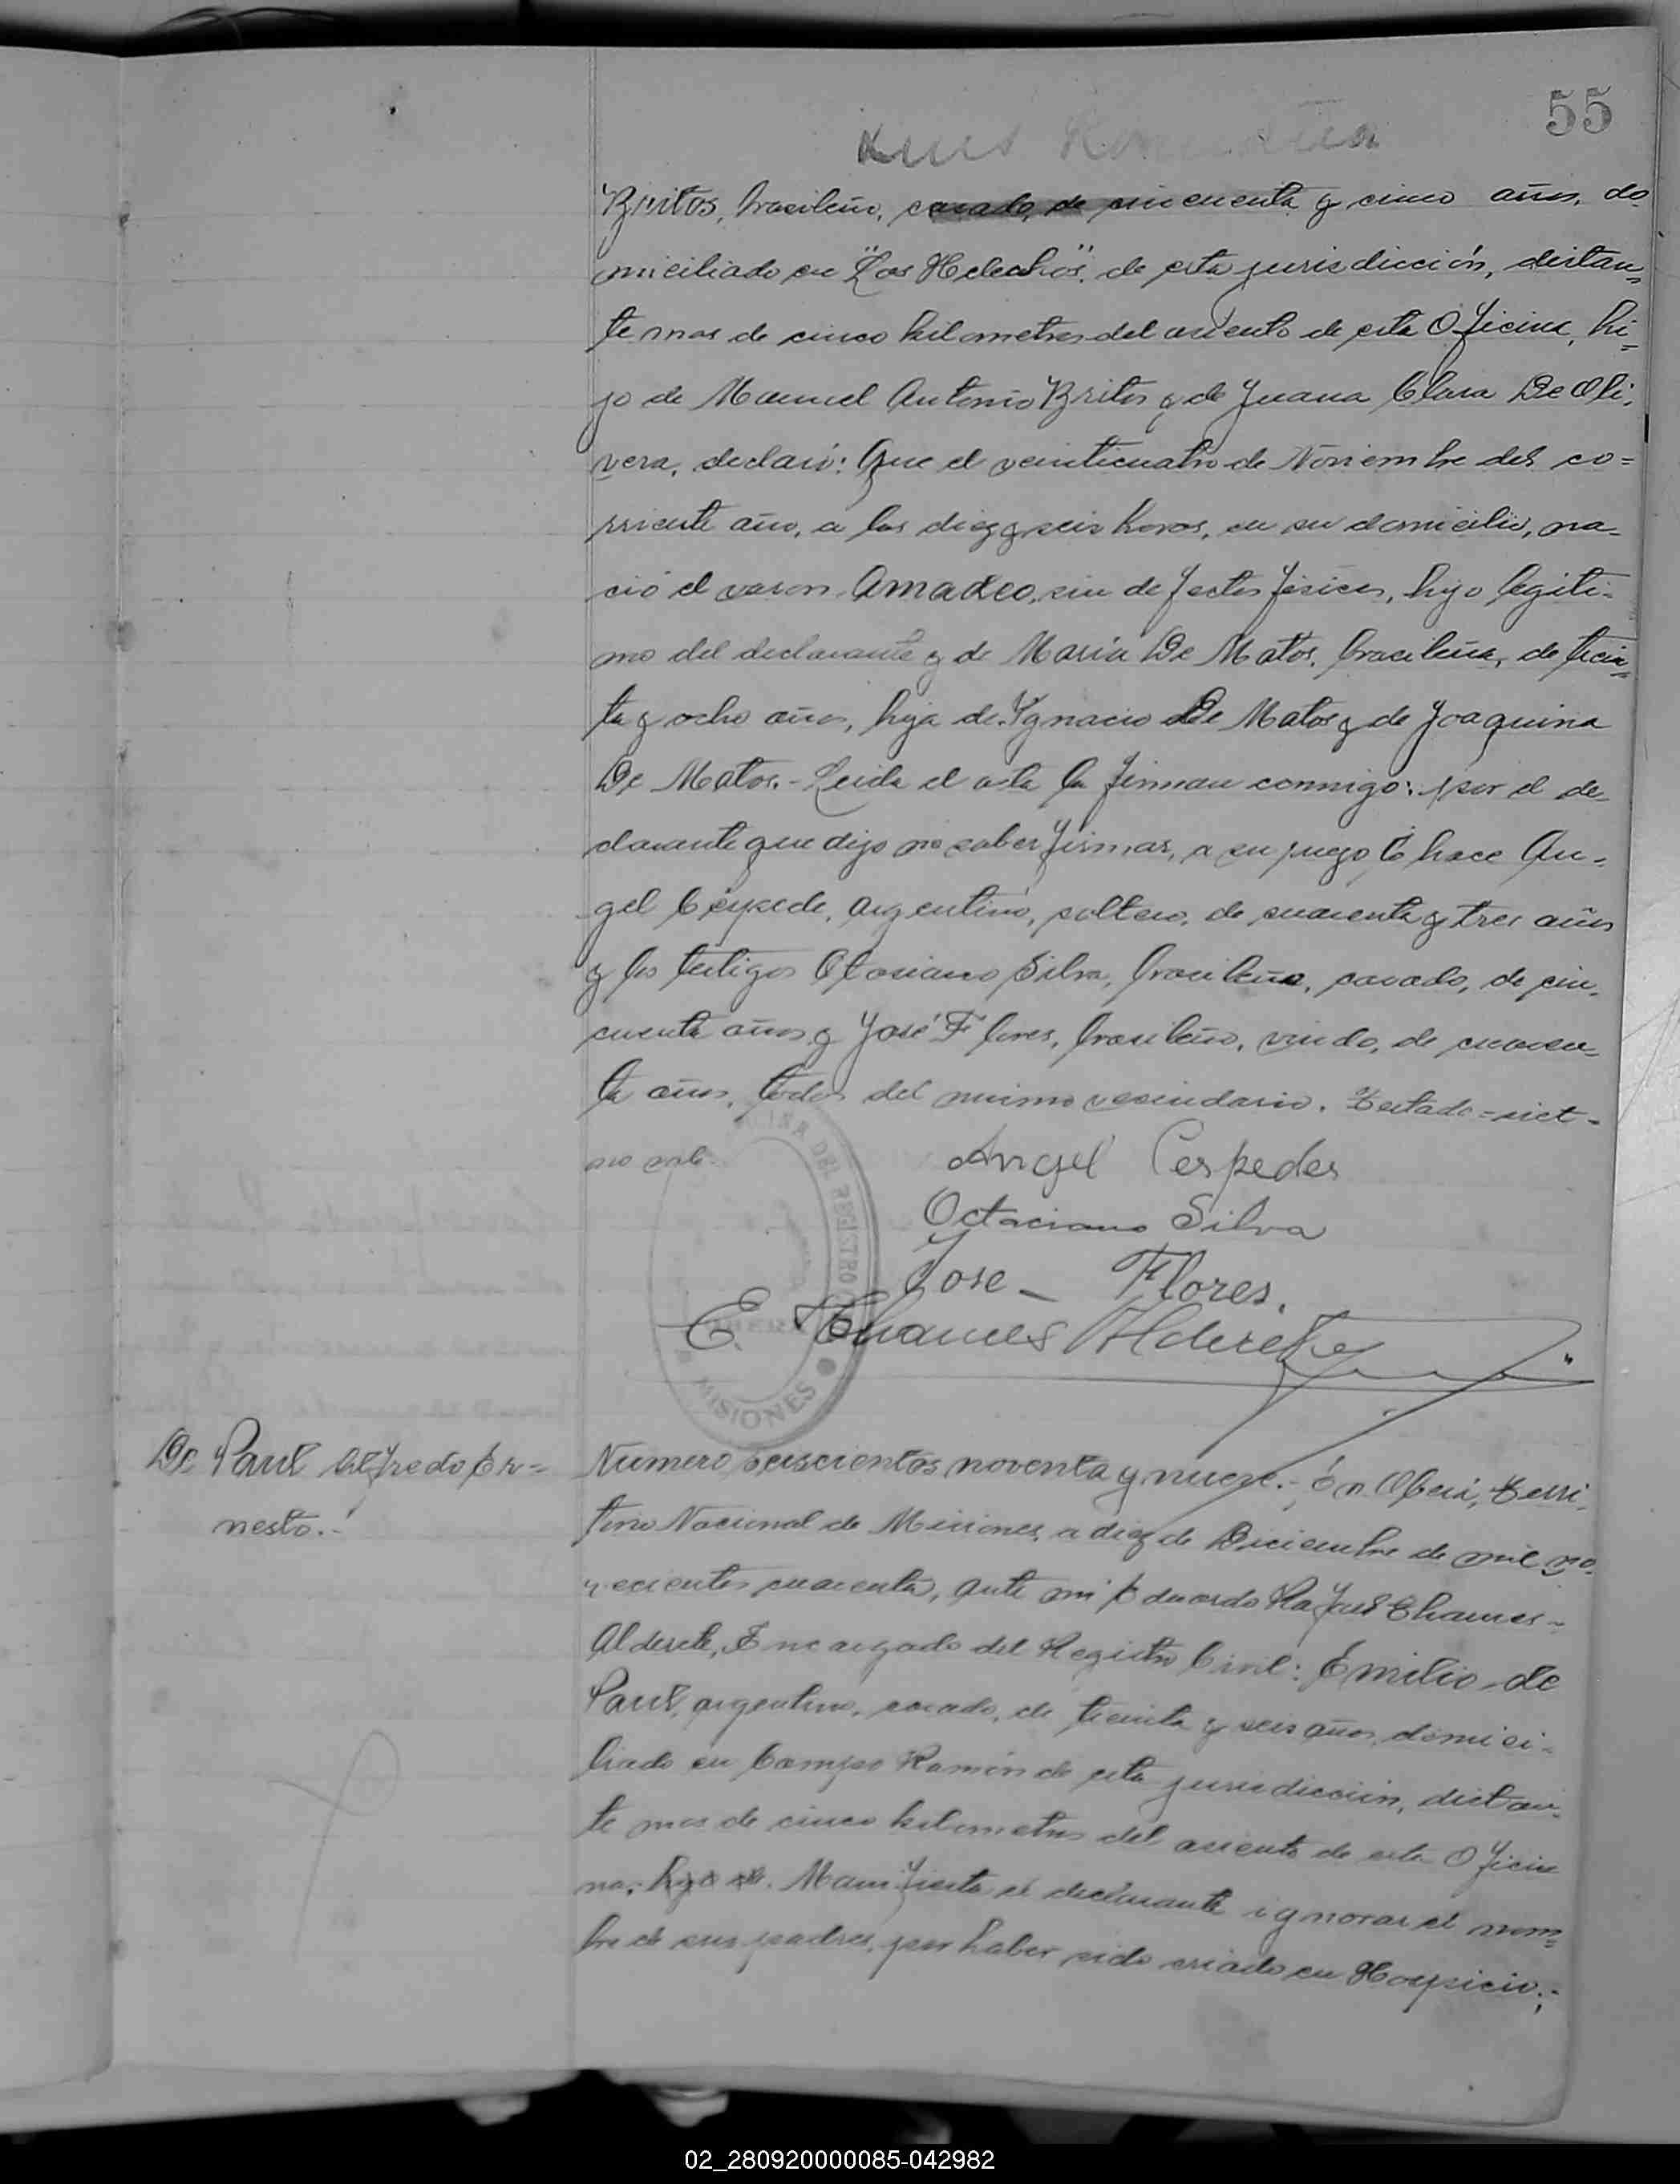 55
Britos, brasileño, casado, de cincuenta y cinco años, do
miciliado en "Los Helechos", de esta jurisdicción, distan=
te mas de cinco kilometros del asiento de esta Oficina, hi=
jo de Manuel Antonio Britos y de Juana Clara De Oli,
vera, declaró: Que el veinticuatro de Noviembre del co=
rriente año, a las diez y seis horas, en su domicilio, na-
ció el varon Amadeo, sin defectos fisicos, hijo legiti-
mo del declarante y de Maria De Matos, brasileña, de trein=
ta y ocho años, hija de Ygnacio De Matos y de Joaquina
De Matos.- Leida el acta la firman conmigo: por el de
clarante que dijo no saber firmar, a su ruego lo hace An-
gel Céspede, argentino, soltero, de cuarenta y tres años
y los testigos Octaciano Silva, brasileño, casado, de cin-
cuenta años y José Flores, brasileño, viudo, de cuaren-
ta años, todos del mismo vecindario. Testado=
no vale.
Angel Cespedes
Octaciano Silva
Jose - Flores.
E. Thames Alderete
DEL REGISTRO
MISIONES
De Paul Alfredo Er=
nesto.-
Numero seiscientos noventa y nueve.- En Oberá, Terri-
torio Nacional de Misiones, a diez de Diciembre de mil no-
vecientos cuarenta, ante mi Eduardo Rafael Thames-
Alderete, Encargado del Registro Civil: Emilio de
Paul, argentino, casado, de treinta y seis años, domici-
liado en Campo Ramón de esta jurisdicción, distan-
te mas de cinco kilometros del asiento de esta Oficina
na, hijo de. Manifiesta el declarante ignorar el nom=
bre de sus padres, por haber sido criado en Hospicio.;-
02_280920000085-042982